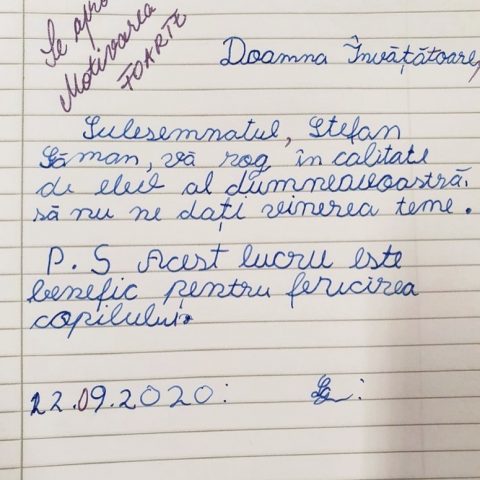 Se apro
Motivarea
FOARTE
Doamna Învățătoare,
Sulesemnatul, Ștefan
Șăman, vă rog în calitate
de elev al dumneavoastră,
să nu ne dați vinerea teme.
P.S Acest lucru este
benefic pentru fericirea
copilului.
22.09.2020: